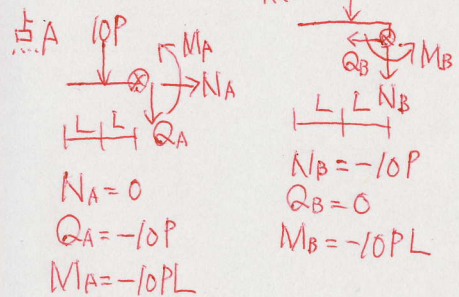 点A
10P
MA
NA
QA
L L
NA=0
QA=-10P
MA=-10PL
QB
MB
NB
L L
NB=-10P
QB=0
MB=-10PL